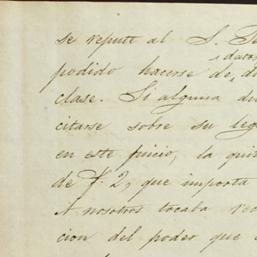 se repute al S.
datos,
podido hacerse de,
clase. Si alguna
citarse sobre su leg
en este juicio, la qui
de f. 2, que importa
A nosotros tocaba
cion del poder que